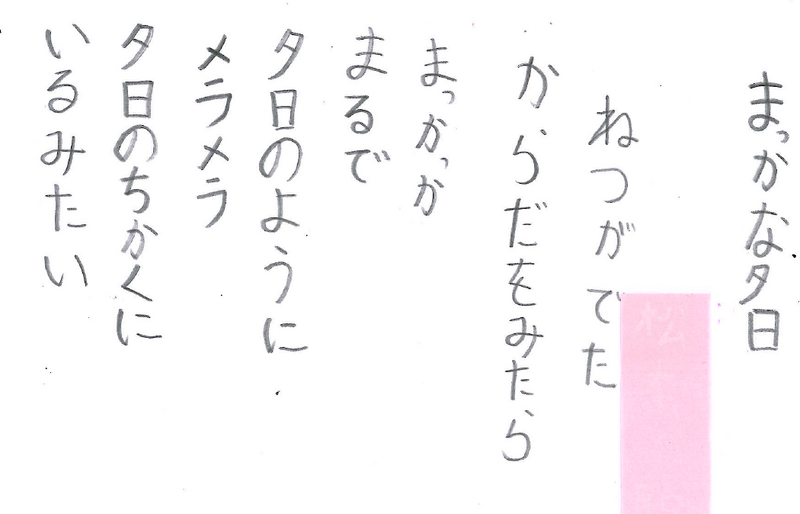 まっかな夕日
ねつがでた
からだをみたら
まっかっか
まるで
夕日のように
メラメラ
夕日のちかくに
いるみたい